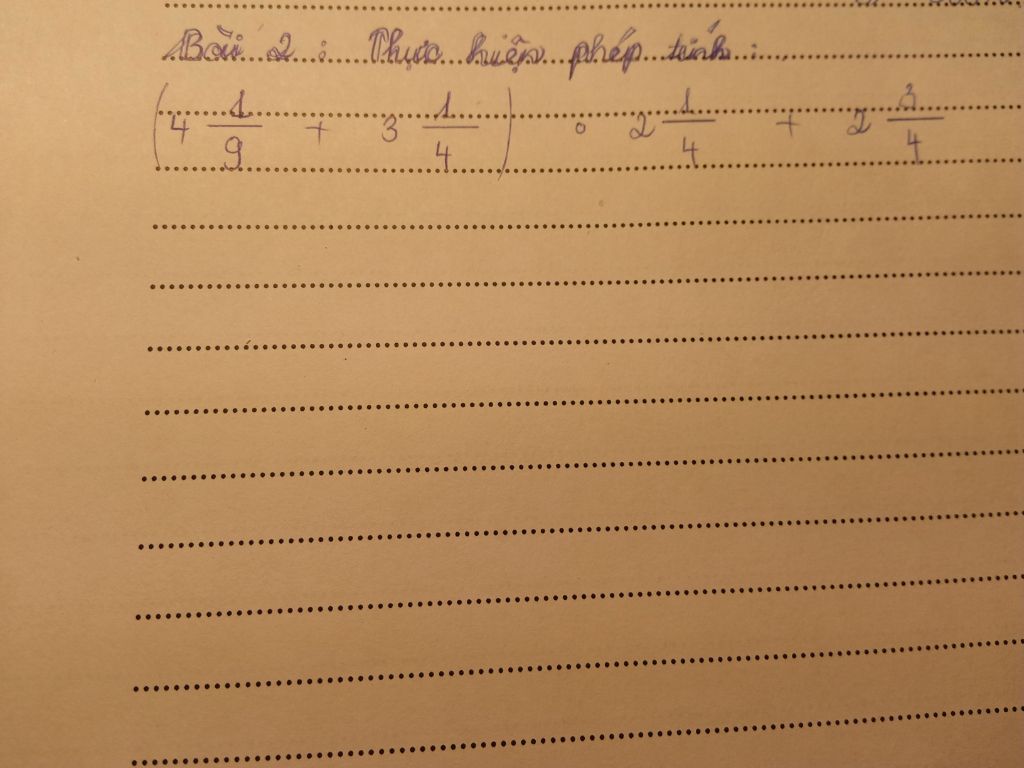 Bài 2 : Thực hiện phép tính :
(4 1/9 + 3 1/4) . 2 1/4 + 2 3/4